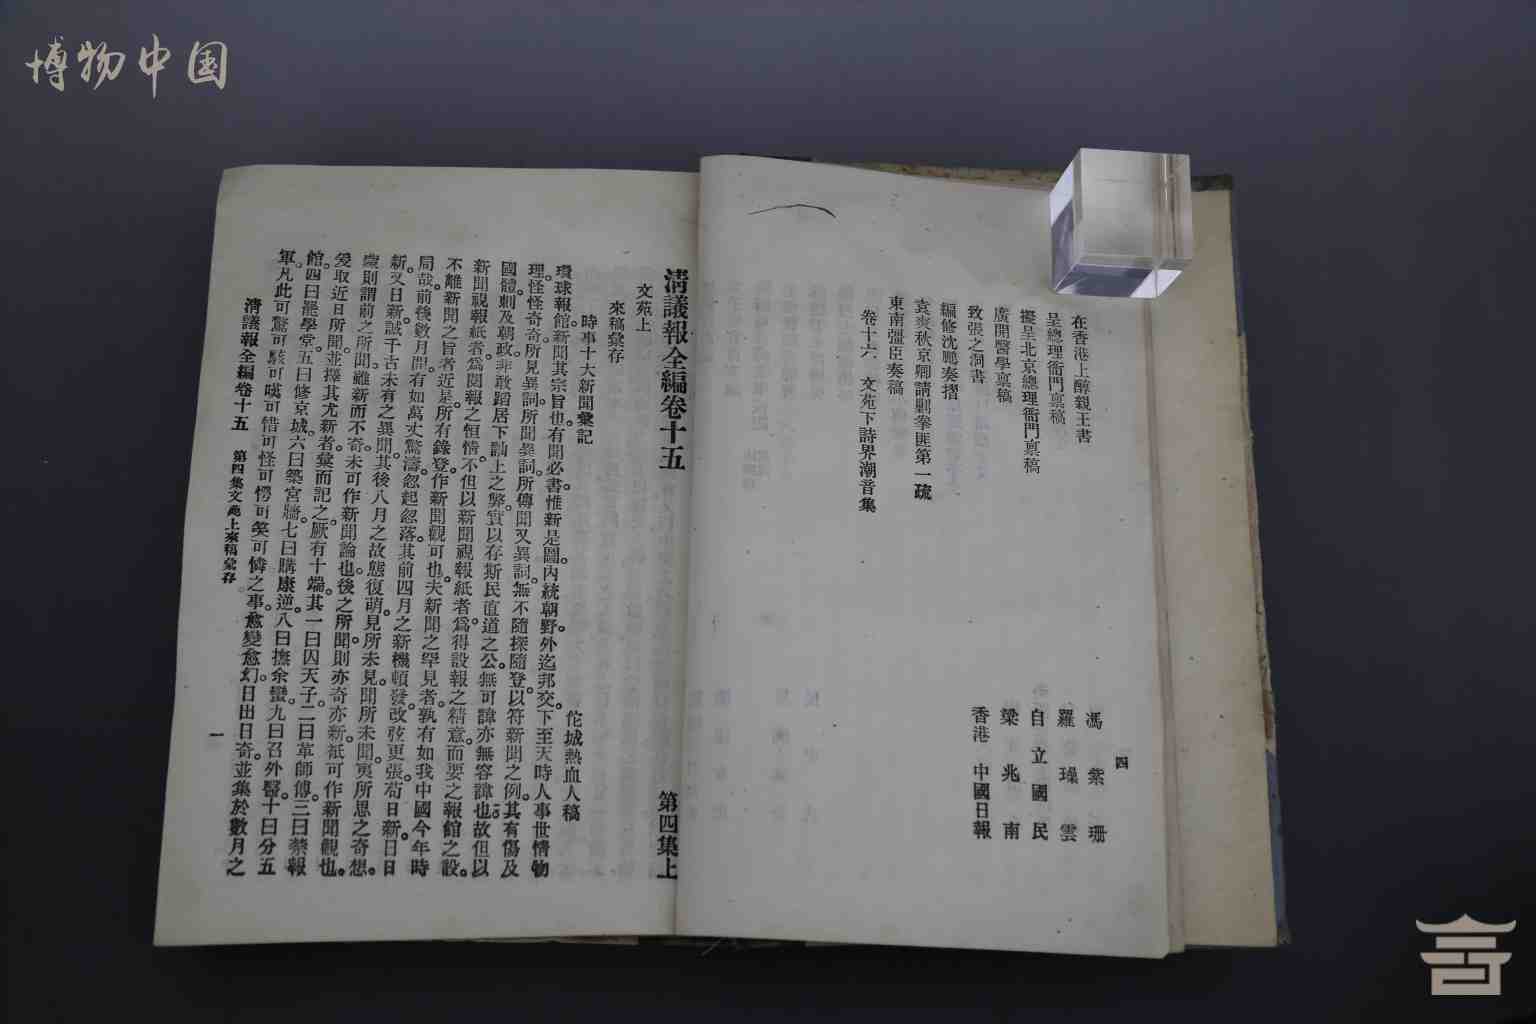 博物中国
四
在香港上醇親王書
馮紫珊
呈總理衙門稟稿
羅璪雲
擬呈北京總理衙門稟稿
自立國民
廣開醫學稟稿
梁兆南
致張之洞書
香港中國日報
編修沈鵬奏摺
袁爽秋京卿請剿拳匪第一疏
東南疆臣奏稿
卷十六 文苑下詩界潮音集
清議報全編卷十五
第四集上
文苑上
來稿彙存
時事十大新聞彙記
佗城熱血人稿
環球報館新聞其宗旨也。有聞必書。惟新是圖。內統朝野。外迄邦交。下至天時人事世情物
理。怪怪奇奇。所見異詞。所聞異詞。所傳聞又異詞。無不隨探隨登。以符新聞之例。其有傷及
國體。刺及朝政。非敢蹈居下訕上之弊。實以存斯民直道之公。無可諱亦無容諱也。故但以
新聞視報紙者。為閱報之恒情。不但以新聞視報紙者。為得設報之精意。而要之報館之設。
不離新聞之旨者近是。所有錄登。作新聞觀可也。夫新聞之罕見者。孰有如我中國今年時
局哉。前後數月間。有如萬丈驚濤。忽起忽落。其前四月之新機頓發。改弦更張。苟日新。日日
新。又日新。誠千古未有之異聞。其後八月之故態復萌。見所未見。聞所未聞。夷所思之奇想。
則謂前之所聞。雖新而不奇。未可作新聞論也。後之所聞。則亦奇亦新。祇可作新聞觀也。
爰取近日所聞。並擇其尤新者。彙而記之。厥有十端。其一曰囚天子。二曰革師傅。三曰禁報
館。四曰罷學堂。五曰修京城。六曰築宮牆。七曰購康逆。八曰撫余蠻。九曰召外醫。十曰分五
軍。凡此可驚可駭可嘆可惜可怪可愕可笑可憐之事。愈變愈幻。日出日奇。並集於數月之
清議報全編卷十五 第四集文苑上來稿彙存
一